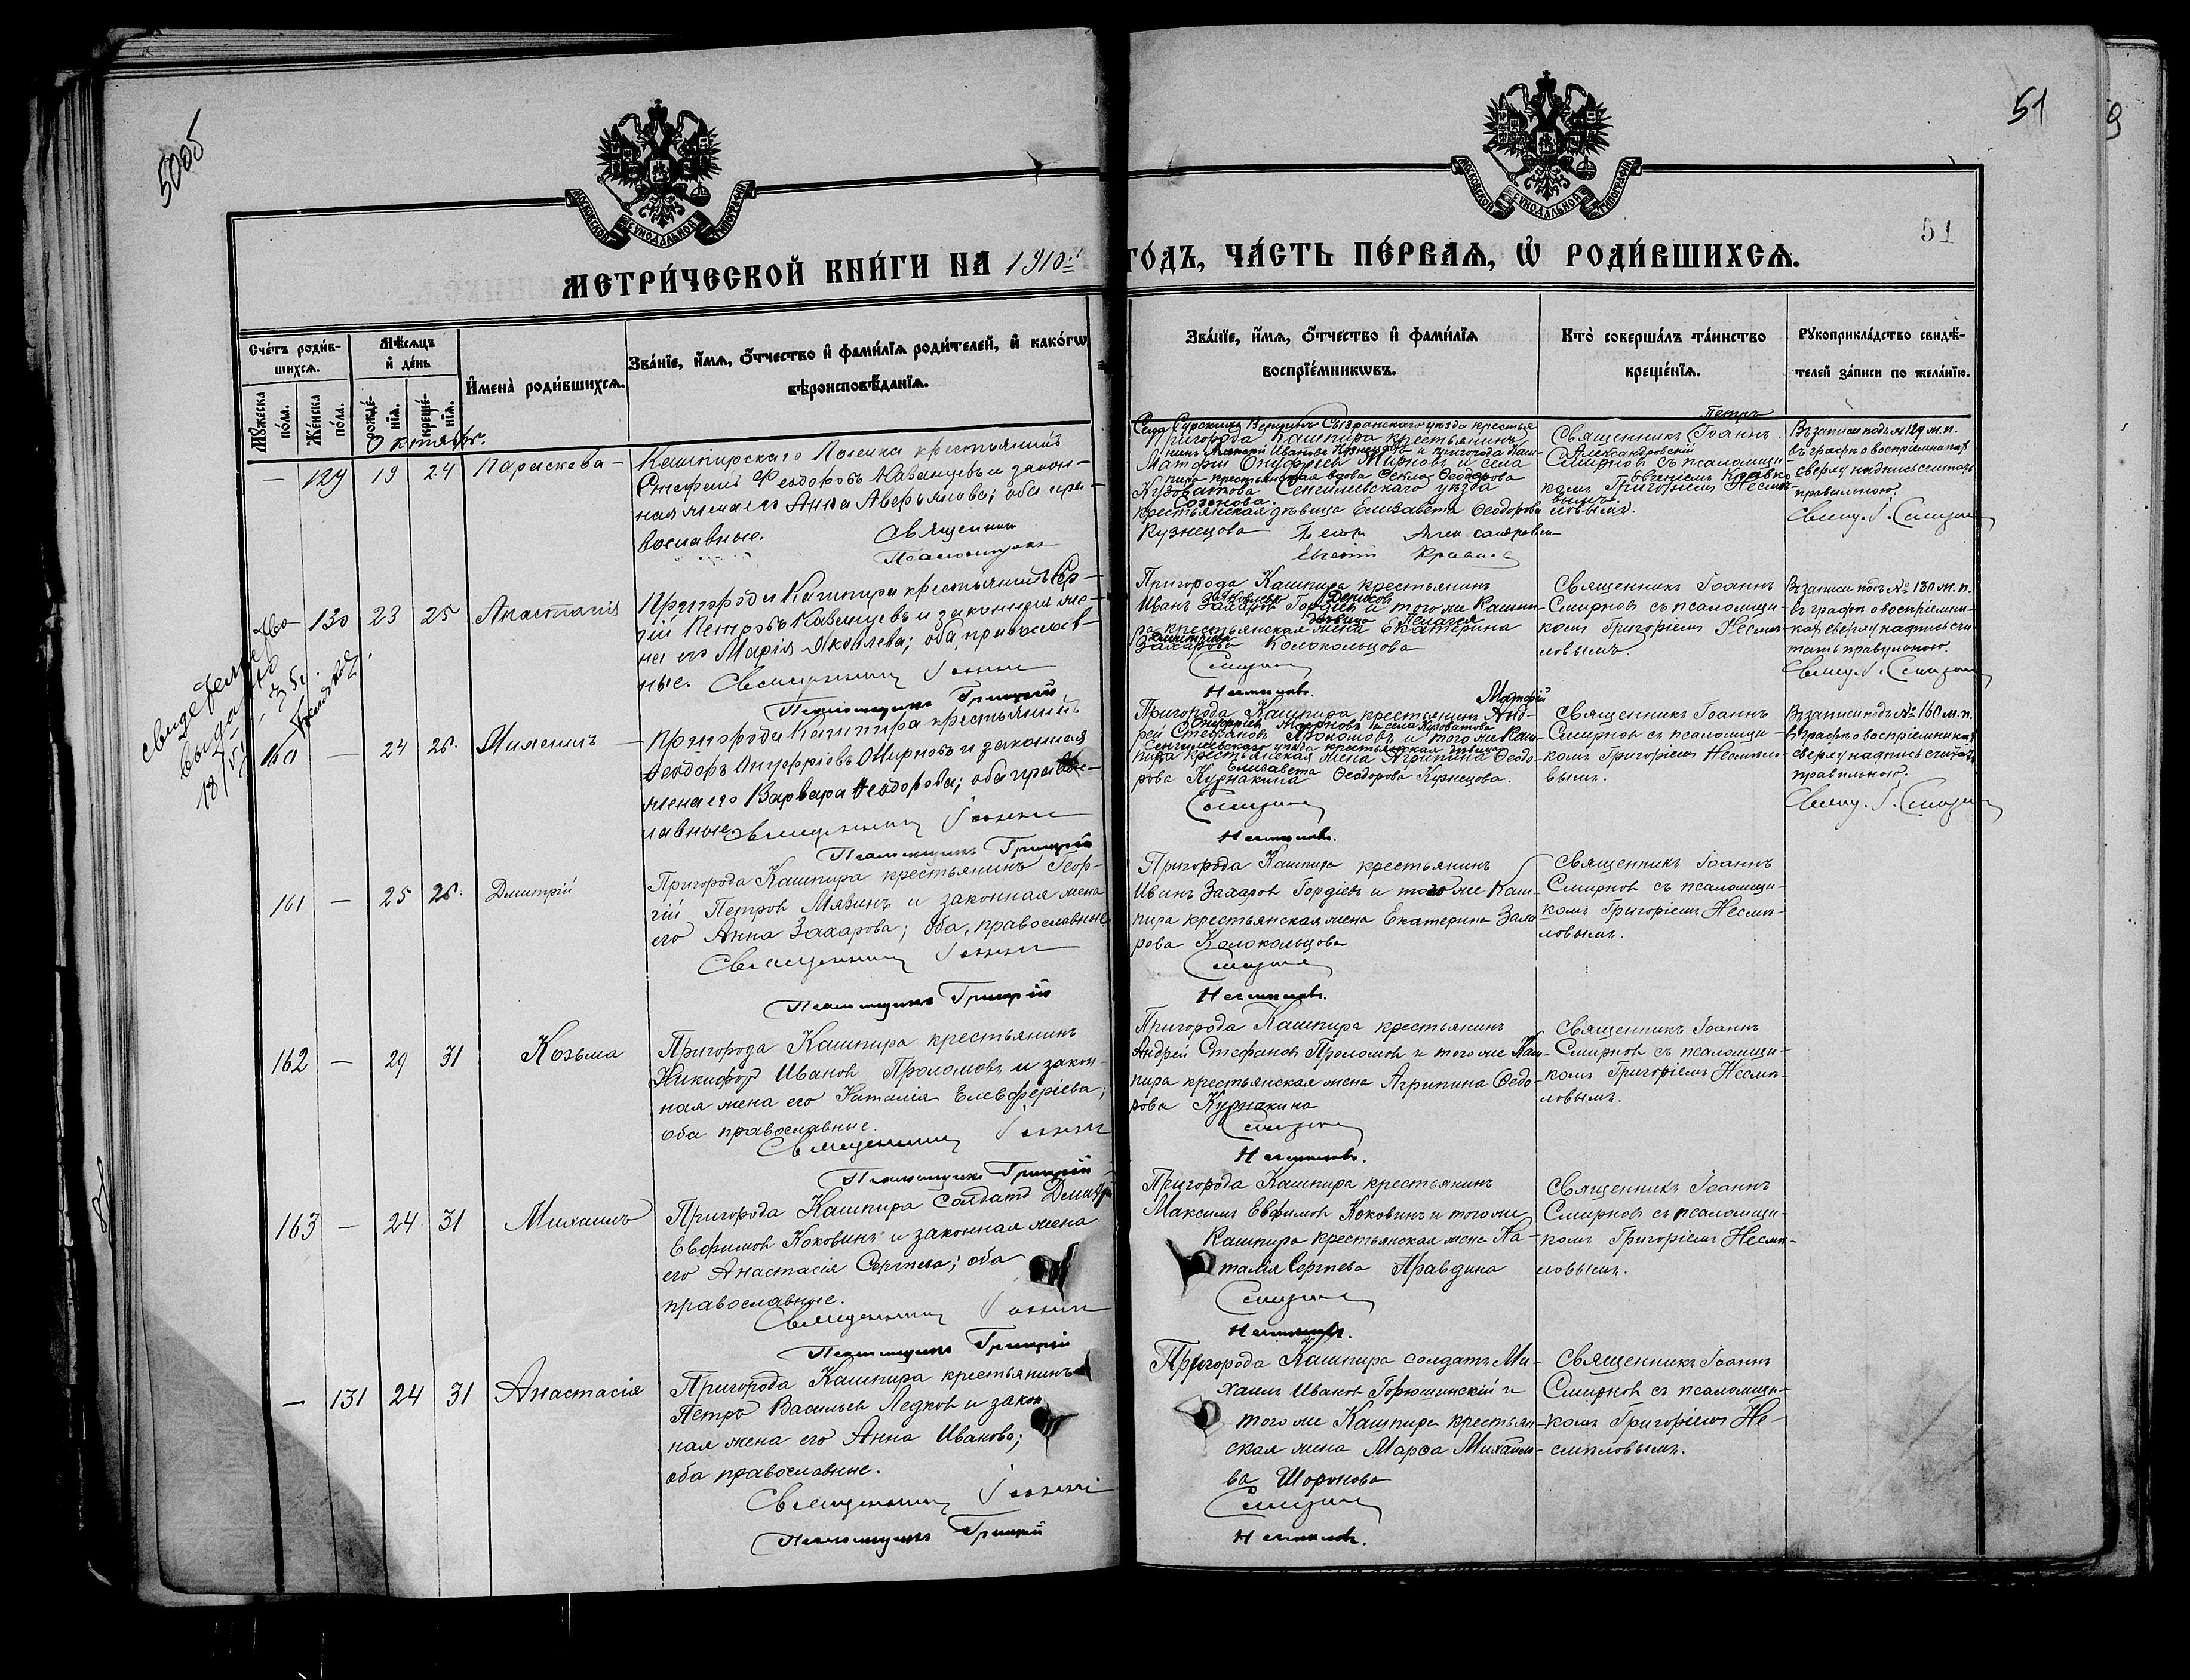 50об
51
51
МОСКОВСКОЙ СѴНОДАЛЬНОЙ ТИПОГРАФІИ
МОСКОВСКОЙ СѴНОДАЛЬНОЙ ТИПОГРАФІИ
МЕТРИ́ЧЕСКОЙ КНИ́ГИ НА 1910й
ГО́ДЪ, ЧА́СТЬ ПЕ́РВАѦ, Ѡ҆ РОДИ́ВШИХСѦ.
Сче́тъ роди́в-
шихсѧ.
Мѹ́жеска по́ла.
Же́нска по́ла.
Мѣ́сѧцъ и҆ де́нь
рожде́-нїѧ.
креще́-нїѧ.
И҆мена̀ роди́вшихсѧ.
Зва́нїе, и҆́мѧ, ѻ҆́тчество и҆ фами́лїѧ роди́телей, и҆ како́гѡ
вѣроисповѣ́данїѧ.
Зва́нїе, и҆́мѧ, ѻ҆́тчество и҆ фами́лїѧ
воспрїе́мникѡвъ.
Кто̀ соверша́лъ та́инство
креще́нїѧ.
Рѹкоприкла́дство свидѣ́-
телей за́писи по жела́нїю.
Октябрь.
— 129 19 24 Параскева
Кашпирскаго Поселка крестьянинъ
Стефанъ Феодоровъ Казанцевъ и закон-
ная жена его Анна Аверьянова; оба пра-
вославные.
Священникъ
Псаломщикъ
Село Сурскихъ Вершинъ Сызранскаго уѣзда крестья
Пригорода Кашпира крестьянинъ
нинъ Ивановъ Кузнецовъ и пригорода Каш-
Матфій Онуфріевъ Мирновъ и села
пира крестьянская вдова Феодорова
Кузоватова Сенгилеевскаго уѣзда
Созонова.
крестьянская дѣвица Елизавета Феодорова
Кузнецова Петръ Александровскій
Евгеній
Петръ
Священникъ Іоаннъ
Александровскій
Смирновъ съ псаломщи-
Евгеніемъ
комъ Григоріемъ Несмѣ-
ловымъ.
Въ записи подъ № 129 ж. п.
въ графѣ о воспріемникахъ
сверху надпись считать
правильною.
Свящ. І. Смирновъ
130 23 25 Анастасія
Пригорода Кашпира крестьянинъ Сер-
гій Петровъ Казанцевъ и законная же-
на его Марія Яковлева; оба, православ-
ные. Священникъ Іоаннъ
Псаломщикъ Григорій
Пригорода Кашпира крестьянинъ
Денисовъ
Иванъ Захаровъ Гордѣевъ и того же Кашпи-
дѣвица Пелагея
ра крестьянская жена Екатерина
Димитріева
Захарова Колокольцова
Смирновъ
Несмѣловъ.
Священникъ Іоаннъ
Смирновъ съ псаломщи-
комъ Григоріемъ Несмѣ-
ловымъ.
Въ записи подъ № 130 ж. п.
въ графѣ о воспріемни-
кахъ сверху надпись счи-
тать правильною.
Свящ. І. Смирновъ
Свидетельство
выдано
18/5
160 — 24 26.
Пригорода Кашпира крестьянинъ
Феодоръ Онуфріевъ Мирновъ и законная
жена его Варвара Феодорова; оба правос-
лавные Священникъ Іоаннъ
Псаломщикъ Григорій
Матфій
Пригорода Кашпира крестьянинъ Анд-
Онуфріевъ Мирновъ и села Кузоватова
рей Стефановъ Проломовъ и того же Каш-
Сенгилеевскаго уѣзда крестьянская дѣвица
пира крестьянская жена Агрипина Феодо-
Елизавета Феодорова Кузнецова.
рова Курнакина
Смирновъ
Несмѣловъ.
Священникъ Іоаннъ
Смирновъ съ псаломщи-
комъ Григоріемъ Несмѣло-
вымъ.
Въ записи подъ № 160 м. п.
въ графѣ о воспріемникахъ
сверху надпись считать
правильною.
Свящ. І. Смирновъ
161 — 25 26. Дмитрій
Пригорода Кашпира крестьянинъ Геор-
гій Петровъ Мязинъ и законная жена
его Анна Захарова; оба, православные
Священникъ Іоаннъ
Псаломщикъ Григорій
Пригорода Кашпира крестьянинъ
Иванъ Захаровъ Гордѣевъ и того же Каш-
пира крестьянская жена Екатерина Заха-
рова Колокольцова
Смирновъ
Несмѣловъ.
Священникъ Іоаннъ
Смирновъ съ псаломщи-
комъ Григоріемъ Несмѣ-
ловымъ.
162 — 29 31 Козьма
Пригорода Кашпира крестьянинъ
Никифоръ Ивановъ Проломовъ и закон-
ная жена его Наталія Елевферіева;
оба православные.
Священникъ Іоаннъ
Псаломщикъ Григорій
Пригорода Кашпира крестьянинъ
Андрей Стефановъ Проломовъ и того же Каш-
пира крестьянская жена Агрипина Федо-
рова Курнакина
Смирновъ
Несмѣловъ.
Священникъ Іоаннъ
Смирновъ съ псаломщи-
комъ Григоріемъ Несмѣ-
ловымъ.
163 — 24 31 Михаилъ
Пригорода Кашпира солдатъ Дмитрій
Евфимовъ Коковинъ и законная жена
его Анастасія Сергѣева; оба
православные.
Священникъ Іоаннъ
Псаломщикъ Григорій
Пригорода Кашпира крестьянинъ
Максимъ Евфимовъ Коковинъ и того же
Кашпира крестьянская жена На-
талія Сергѣева Правдина
Смирновъ
Несмѣловъ.
Священникъ Іоаннъ
Смирновъ съ псаломщи-
комъ Григоріемъ Несмѣ-
ловымъ.
— 131 24 31 Анастасія
Пригорода Кашпира крестьянинъ
Петръ Васильевъ Ледковъ и закон
ная жена его Анна Иванова;
оба православные.
Священникъ Іоаннъ
Псаломщикъ Григорій
Пригорода Кашпира солдатъ Ми-
хаилъ Ивановъ Горюшинскій и
того же Кашпира крестьян-
ская жена Марѳа Михайло-
ва Шоронова
Смирновъ
Несмѣловъ.
Священникъ Іоаннъ
Смирновъ съ псаломщи-
комъ Григоріемъ Не-
смѣловымъ.